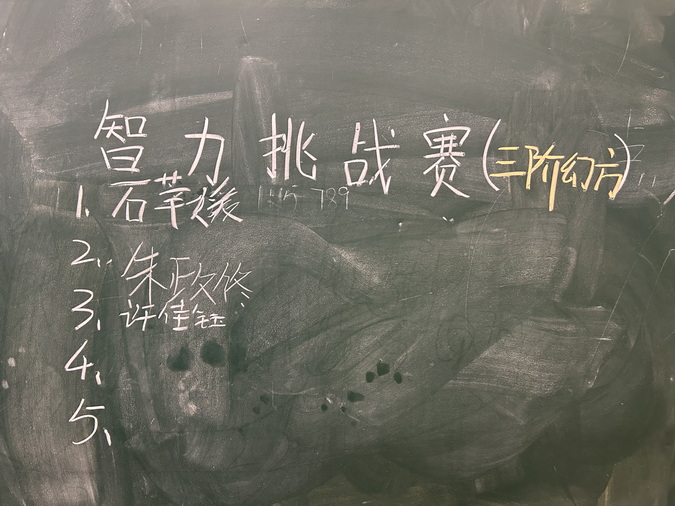 智力挑战赛(三阶幻方)
1、石芊媛 789
2、朱政修
3、许佳钰
4、
5、